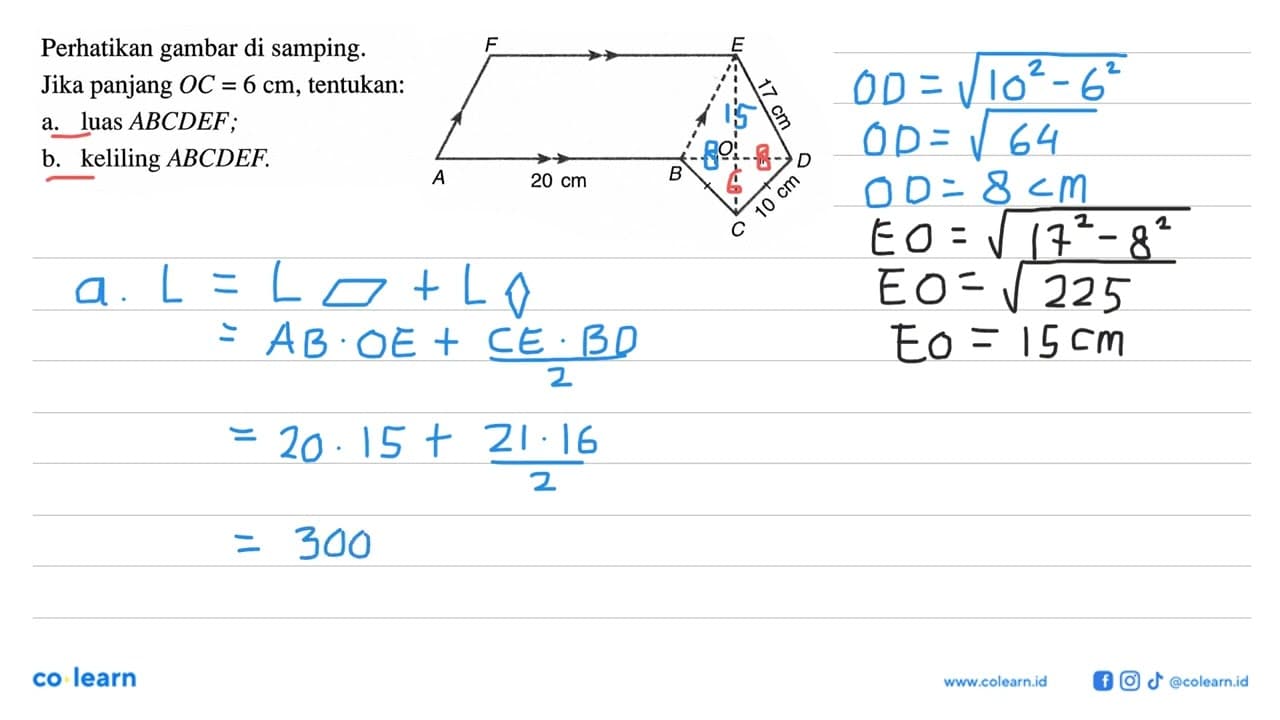 Perhatikan gambar di samping.
Jika panjang OC = 6 cm, tentukan:
a. luas ABCDEF;
b. keliling ABCDEF.
F
E
17 cm
15
8
O
8
D
A
20 cm
B
6
10 cm
C
OD = √10² - 6²
OD = √64
OD = 8 cm
EO = √17² - 8²
EO = √225
EO = 15 cm
a. L = L ▱ + L ◊
= AB · OE + CE · BD / 2
= 20 · 15 + 21 · 16 / 2
= 300
co learn
www.colearn.id
@colearn.id